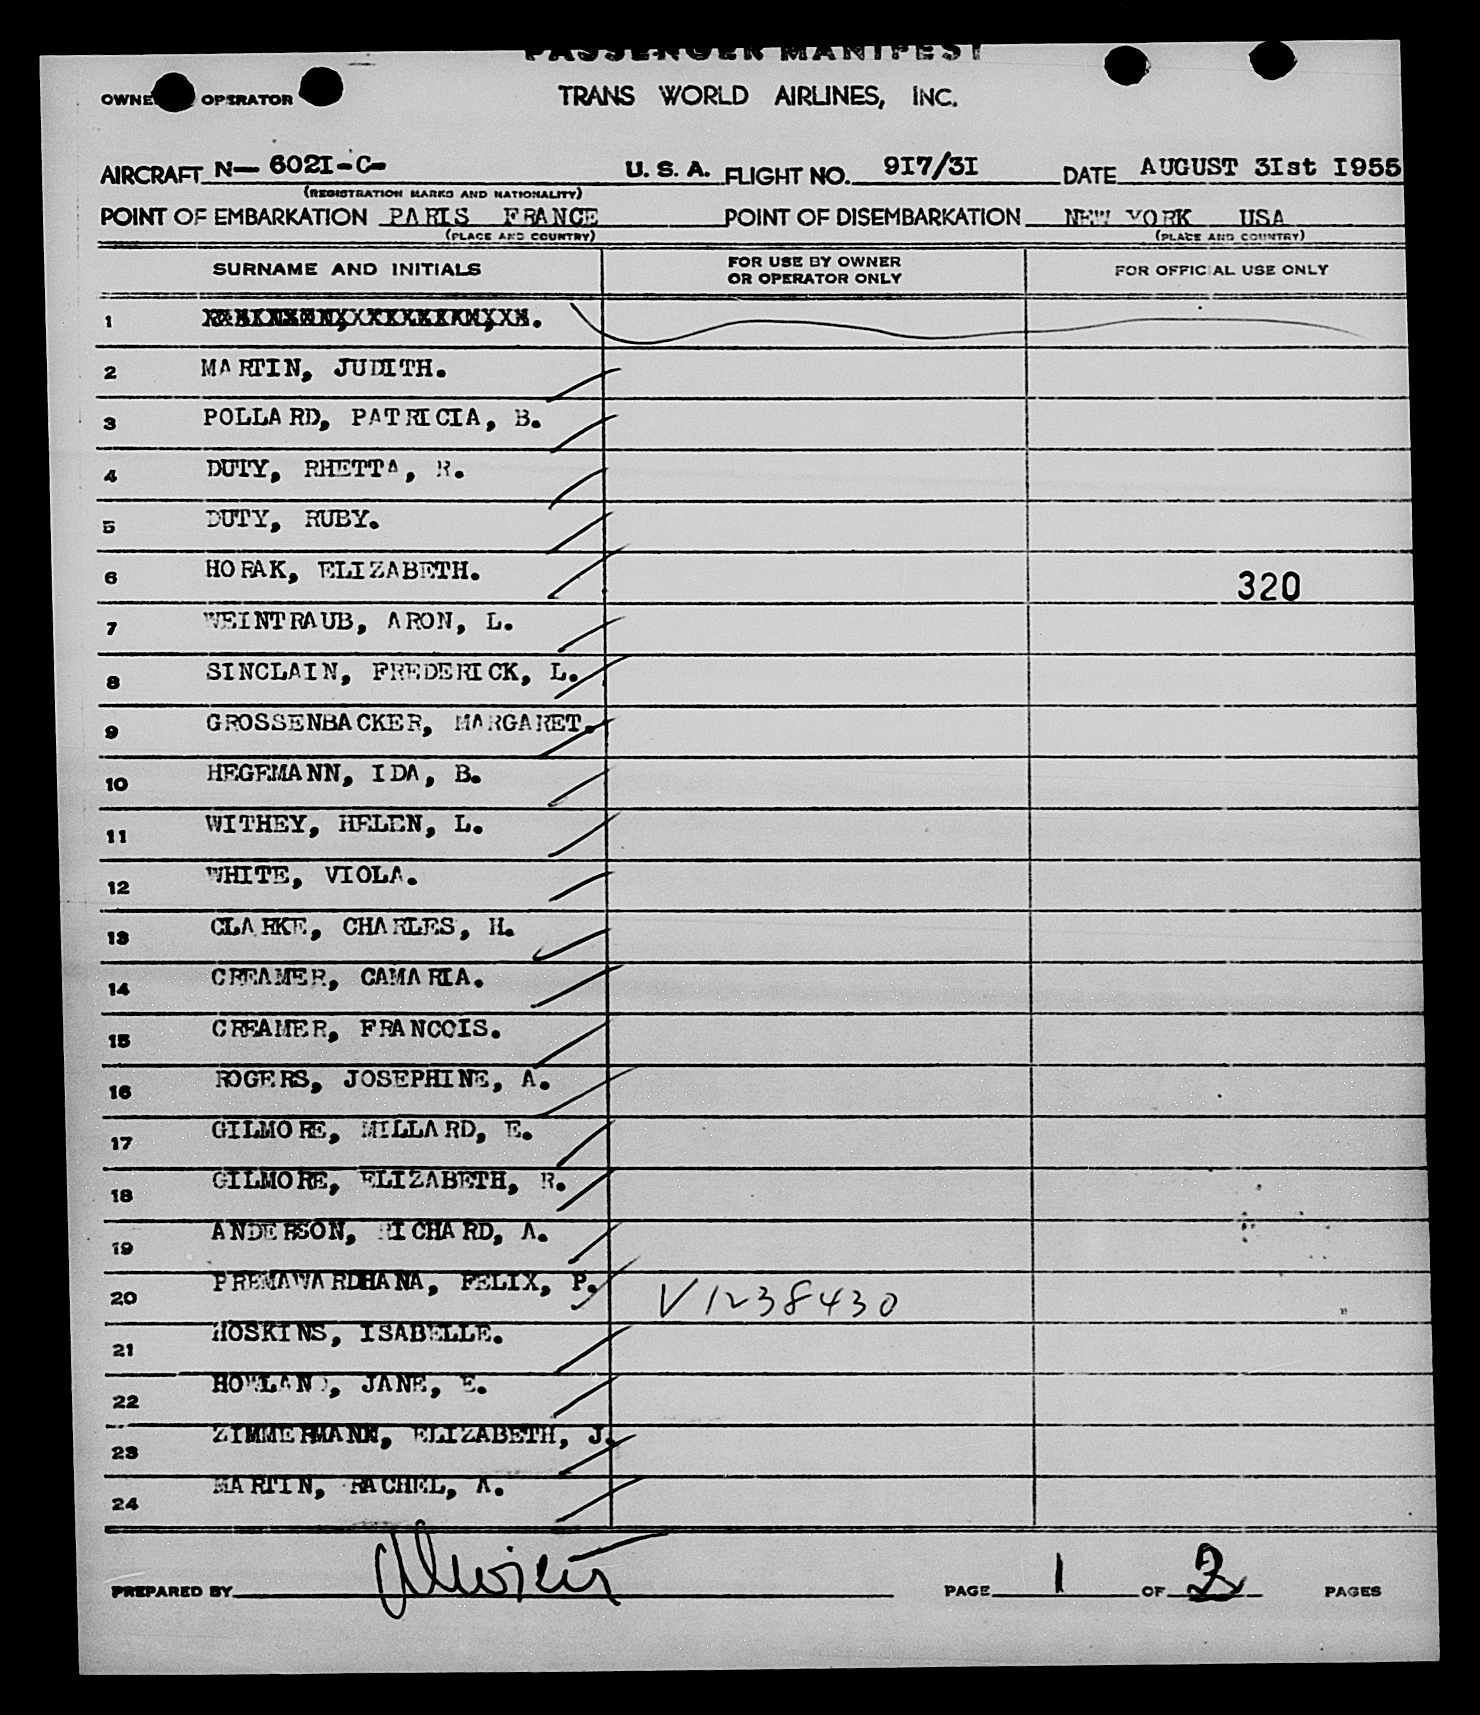 PASSENGER MANIFEST
OWNER OPERATOR
TRANS WORLD AIRLINES, INC.
AIRCRAFT N- 602I-C- U. S. A. FLIGHT NO. 9I7/3I DATE AUGUST 3Ist I955
(REGISTRATION MARKS AND NATIONALITY)
POINT OF EMBARKATION PARIS FRANCE POINT OF DISEMBARKATION NEW YORK USA
(PLACE AND COUNTRY) (PLACE AND COUNTRY)
SURNAME AND INITIALS FOR USE BY OWNER OR OPERATOR ONLY FOR OFFICIAL USE ONLY
1
2 MARTIN, JUDITH.
3 POLLARD, PATRICIA, B.
4 DUTY, RHETTA, R.
5 DUTY, RUBY.
6 HORAK, ELIZABETH. 320
7 WEINTRAUB, ARON, L.
8 SINCLAIN, FREDERICK, L.
9 GROSSENBACKER, MARGARET.
10 HEGEMANN, IDA, B.
11 WITHEY, HELEN, L.
12 WHITE, VIOLA.
13 CLARKE, CHARLES, H.
14 CREAMER, CAMARIA.
15 CREAMER, FRANCOIS.
16 ROGERS, JOSEPHINE, A.
17 GILMORE, MILLARD, E.
18 GILMORE, ELIZABETH, R.
19 ANDERSON, RICHARD, A.
20 PREMAWARDHANA, FELIX, P. V1238430
21 HOSKINS, ISABELLE.
22 HOWLAND, JANE, E.
23 ZIMMERMANN, ELIZABETH, J.
24 MARTIN, RACHEL, A.
PREPARED BY PAGE 1 OF 2 PAGES